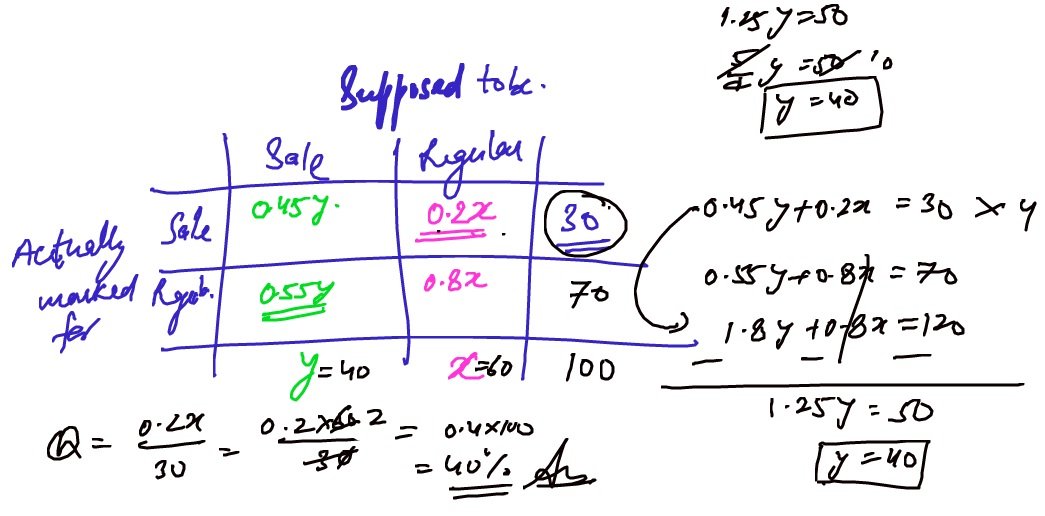 1.25y=50
5/4 y = 50 10
y = 40
Supposed to be.
Sale Regular
Actually marked for
Sale 0.45y. 0.2x . 30
Regula. 0.55y 0.8x 70
y = 40 x=60 100
0.45y+0.2x = 30 × 4
0.55y+0.8x = 70
1.8y+0.8x =120
— — —
1.25y = 50
y = 40
Q = 0.2x/30 = 0.2×60 2/30 = 0.4×100
= 40% Ans